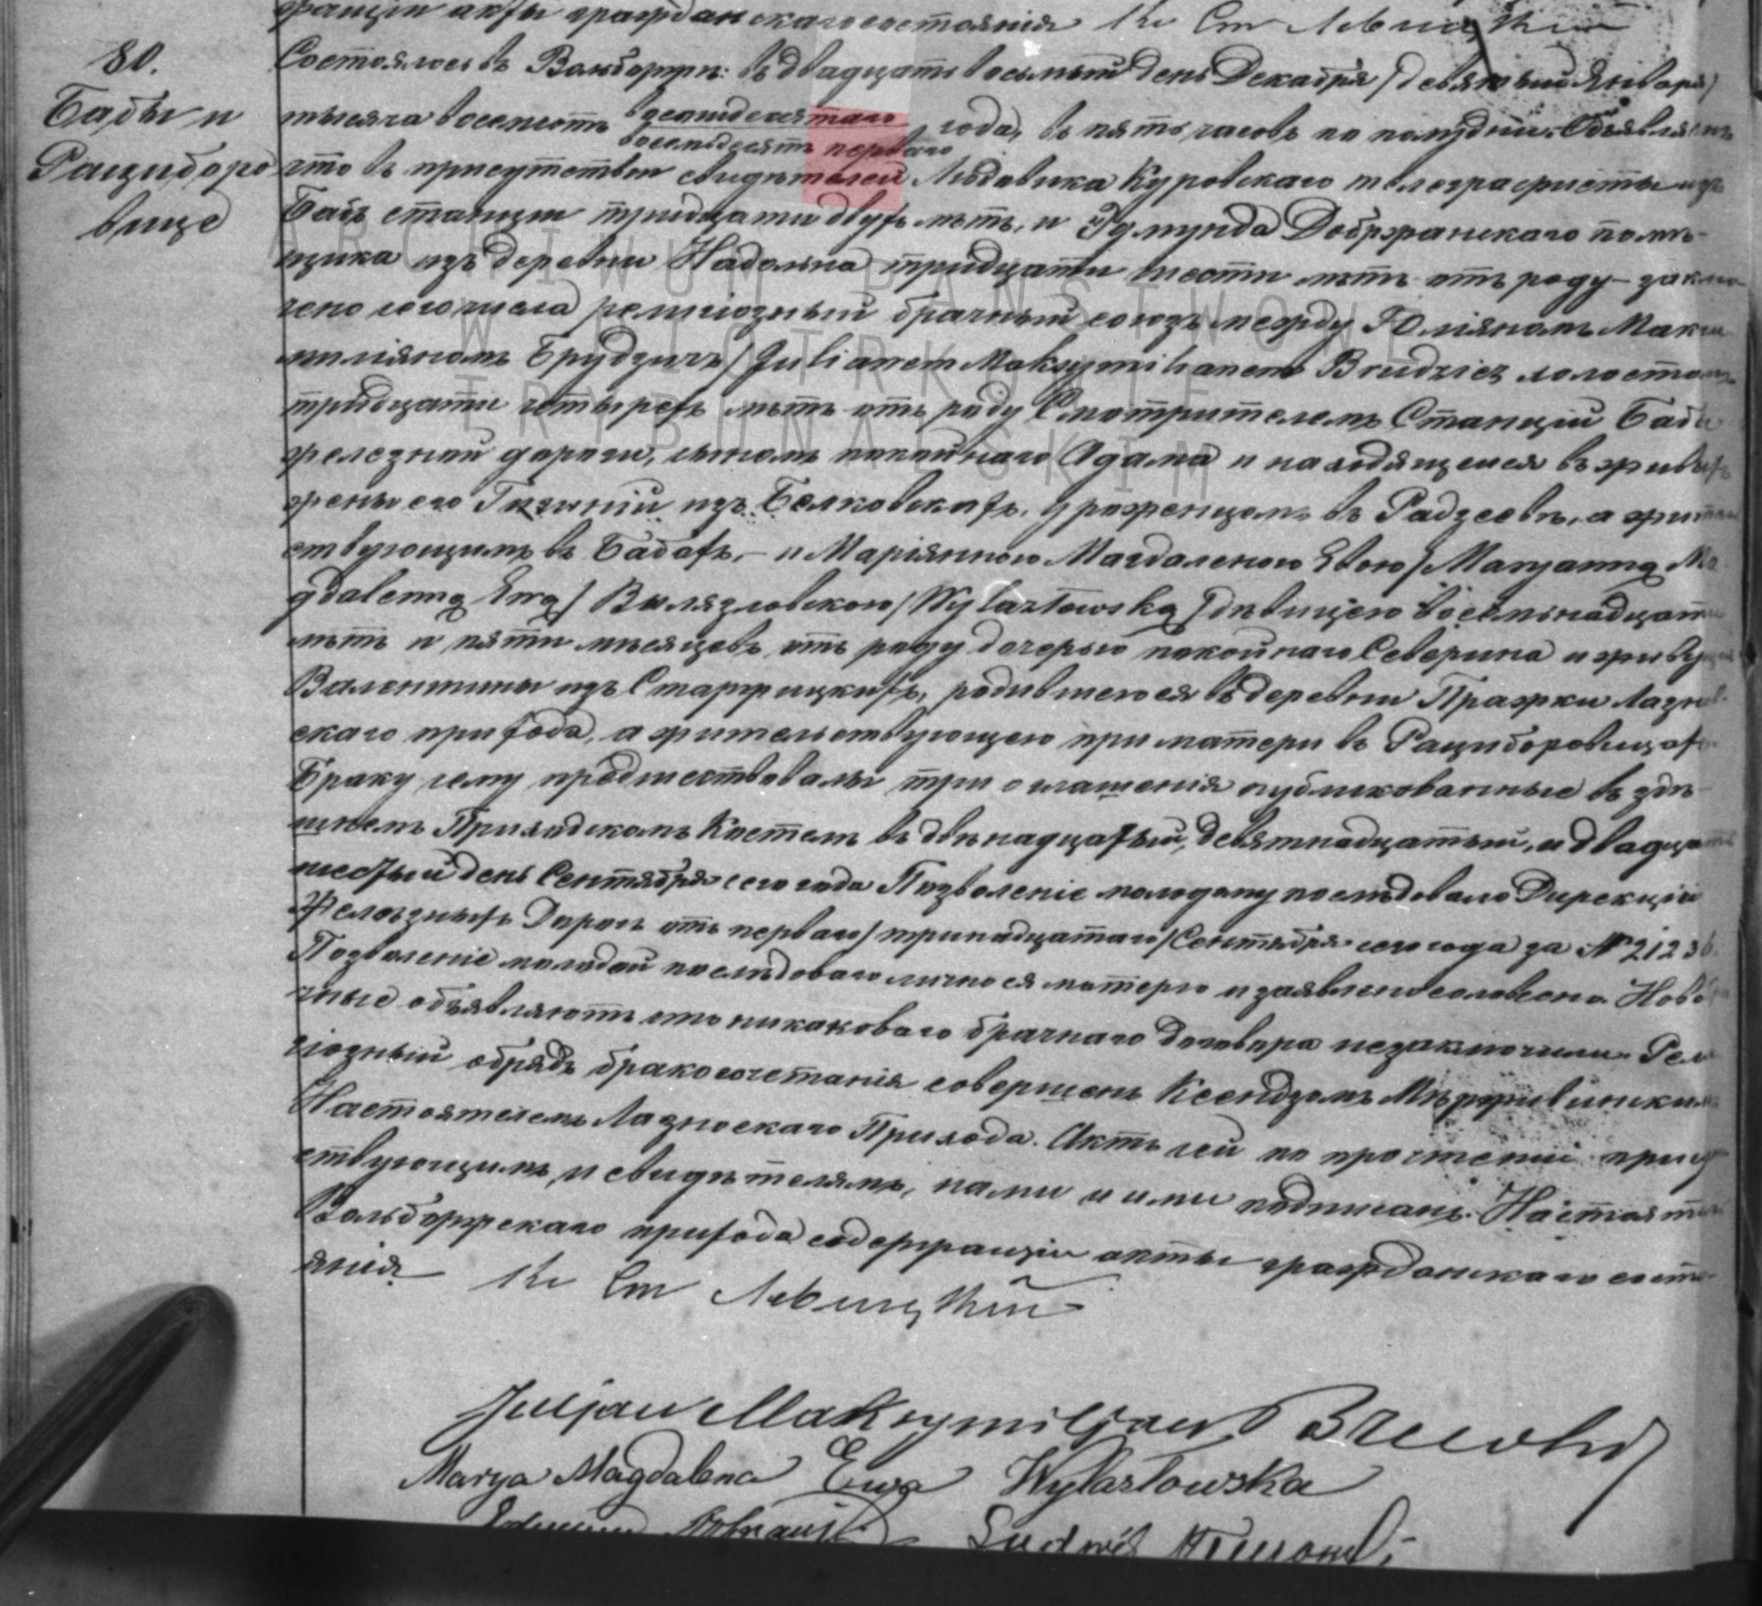 жащій акты гражданскаго состоянія Кс Ст Левицкій
80.
Бабы и
Рациборо
вице
Состоялось въ Вольборжѣ: въ двадцать восьмый день Декабря /девятый Января/
тысяча восемьсотъ восьмидесятаго года, въ пять часовъ по полудни. Объявляемъ
восемьдесятъ перваго
что въ присутствіи свидѣтелей Людовика Куровскаго телеграфисты изъ
Бабъ станціи тридцати двухъ лѣтъ, и Эдмунда Добржанскаго помѣ-
щика изъ деревни Надольна тридцати шести лѣтъ отъ роду – заклю
чено сего числа религіозный брачный союзъ между Юліяномъ Макси
миліяномъ Брудзичъ /Julianem Maksymilianem Brudzicz холостомъ
тридцати четырехъ лѣтъ отъ роду Смотрителемъ Станціи Бабы
железной дороги, сыномъ покойнаго Адама и находящейся въ живыхъ
жены его изъ Белковскихъ, уроженцомъ въ Радзеевѣ, а жител
ствующимъ въ Бабахъ, – и Маріянною Магдаленою Евою /Maryanną Ma
gdalenną Ewą/ Вылязловскою /Wylazłowską/ дѣвицею восемьнадцати
лѣтъ и пяти мѣсяцевъ отъ роду дочерью покойнаго Северина и живущей
Валентины изъ родившеюся въ деревни Пражки Лазнов
скаго прихода, а жительствующею при матери въ Рациборовицахъ.
Браку сему предшествовалы три оглашенія публикованные въ здѣ-
шнемъ Приходскомъ Костелѣ въ двѣнадцатый, девятнадцатый, и двадцать
шестый день Сентября сего года Позволеніе молодому последовало Дирекціи
Желѣзныхъ Дорогъ отъ перваго /тринадцатаго/ Сентября сего года за № 21236.
Позволеніе молодой последовало лично ея матерью и заявлено словесно. Новобра
чные объявляютъ что никаковаго брачнаго договора незаключили. Рели
гіозный обрядъ бракосочетанія совершенъ Ксендзомъ
Настоятелемъ Лазновскаго Прихода. Актъ сей по прочтеніи присут
ствующимъ и свидѣтелямъ, нами и ими подписанъ. Настоятель
Вольборжскаго прихода содержащій акты гражданскаго состо-
янія. Кс Ст Левицкій
Julian Maksymiljan Brudzicz
Marya Magdalena Ewa Wylazłowska
Ludwik
ARCHIWUM PAŃSTWOWE
W PIOTRKOWIE
TRYBUNALSKIM